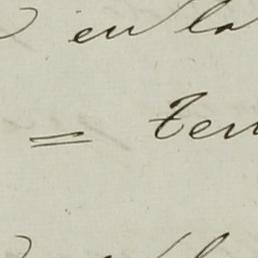 en la
= Ten